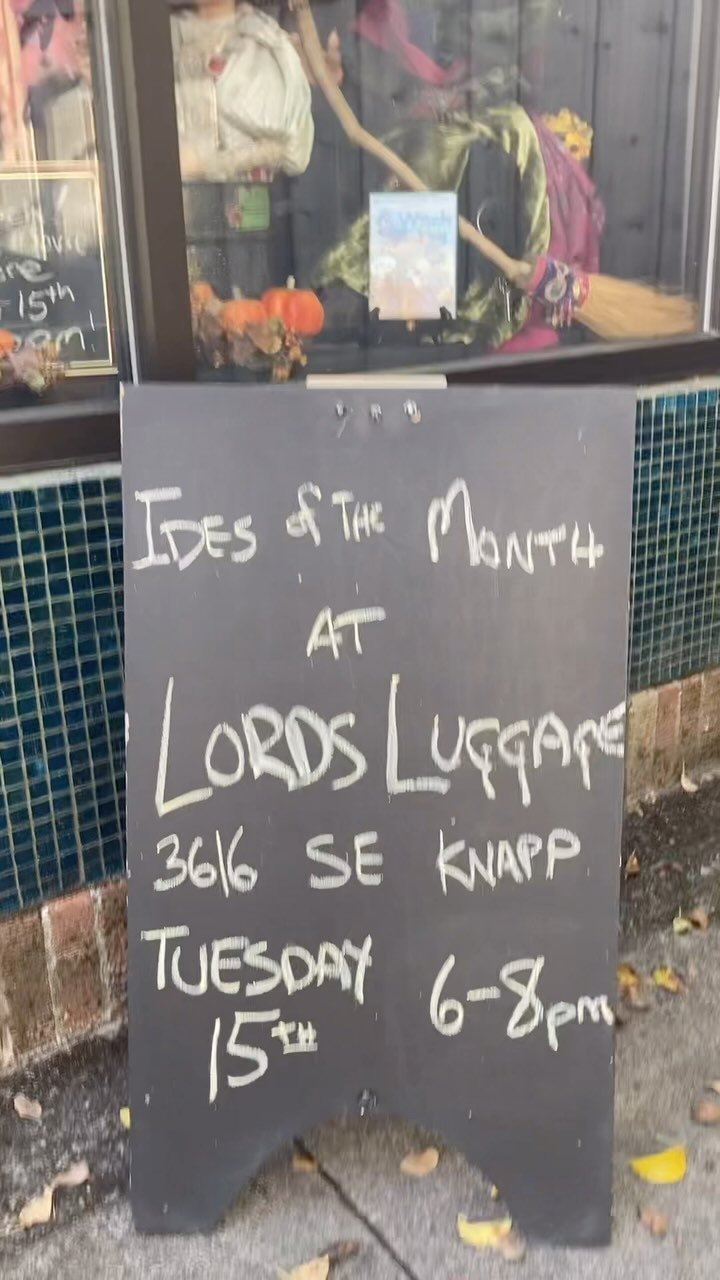 IDES of THE MONTH
AT
LORDS LUGGAGE
3616 SE KNAPP
TUESDAY 6-8pm
15TH
15th